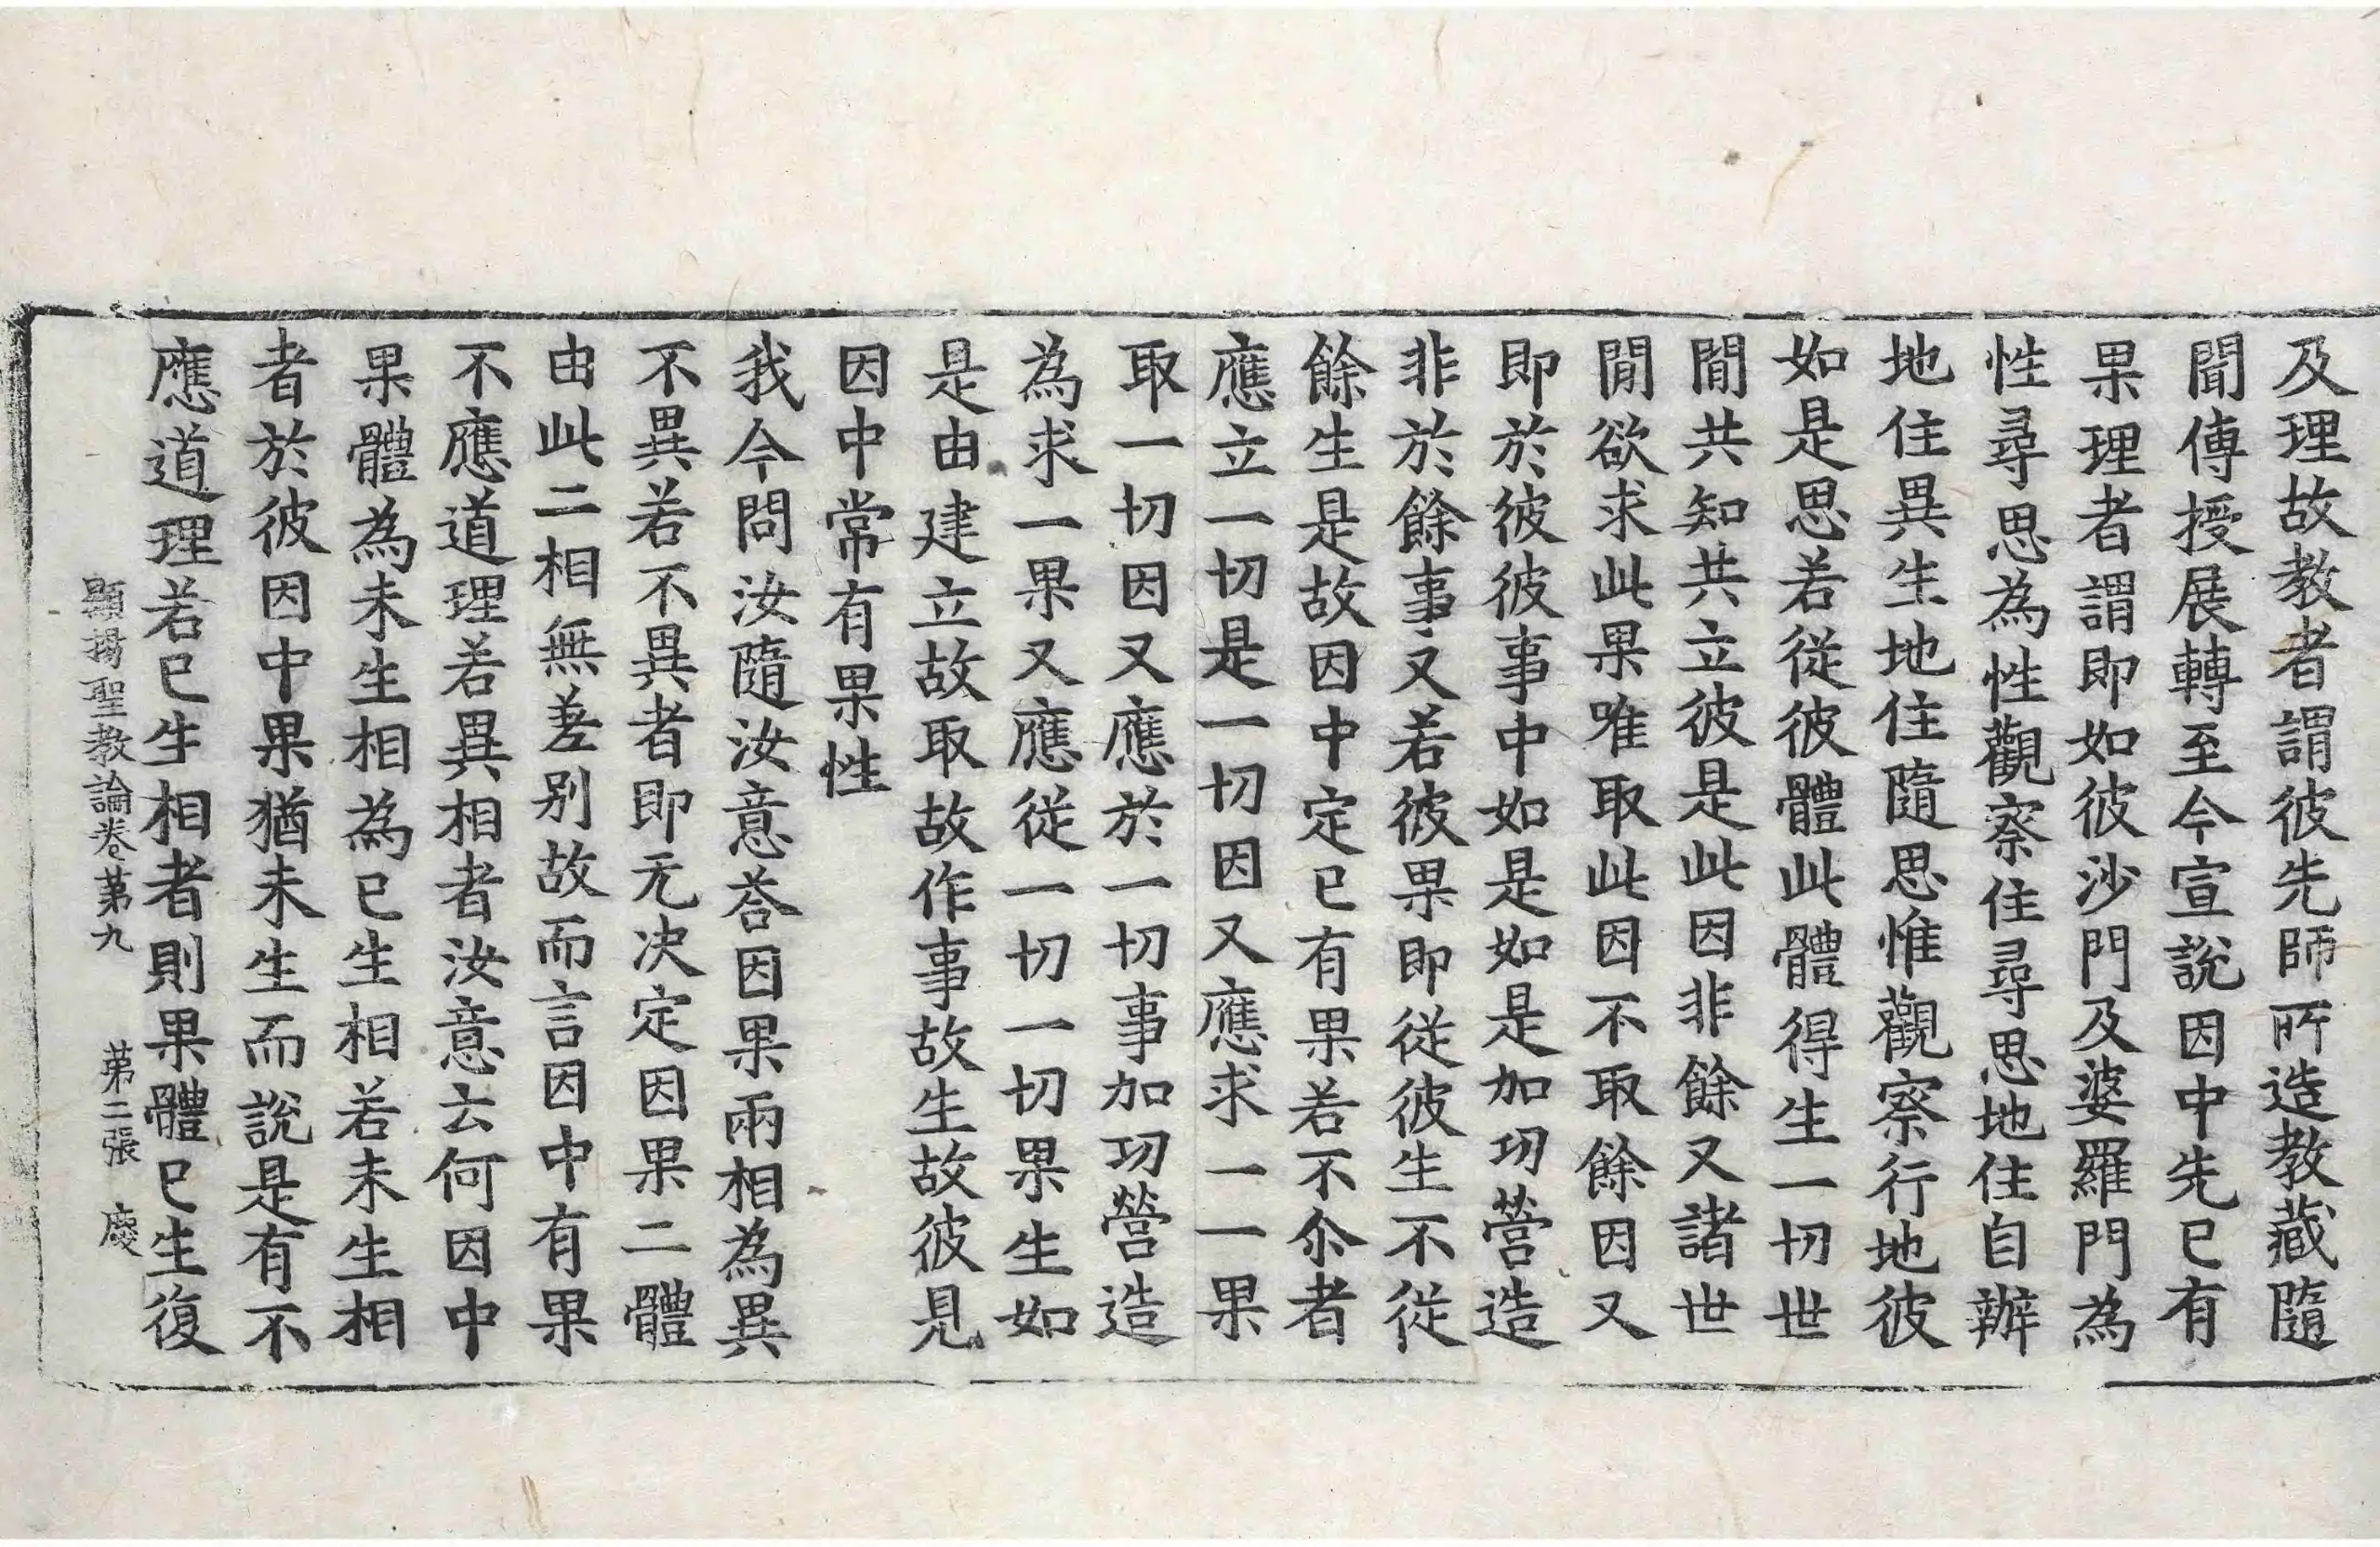 及理故教者謂彼先師所造教藏隨
聞傳授展轉至今宣說因中先已有
果理者謂即如彼沙門及婆羅門為
性尋思為性觀察住尋思地住自辦
地住異生地住隨思惟觀察行地彼
如是思若從彼體此體得生一切世
間共知共立彼是此因非餘又諸世
間欲求此果唯取此因不取餘因又
即於彼彼事中如是如是加功營造
非於餘事又若彼果即從彼生不從
餘生是故因中定已有果若不尒者
應立一切是一切因又應求一一果
取一切因又應於一切事加功營造
為求一果又應從一切一切果生如
是由建立故取故作事故生故彼見
因中常有果性
我今問汝隨汝意荅因果兩相為異
不異若不異者即无決定因果二體
由此二相無差別故而言因中有果
不應道理若異相者汝意云何因中
果體為未生相為已生相若未生相
者於彼因中果猶未生而說是有不
應道理若已生相者則果體已生復
顯揚聖教論卷第九　第二張　慶